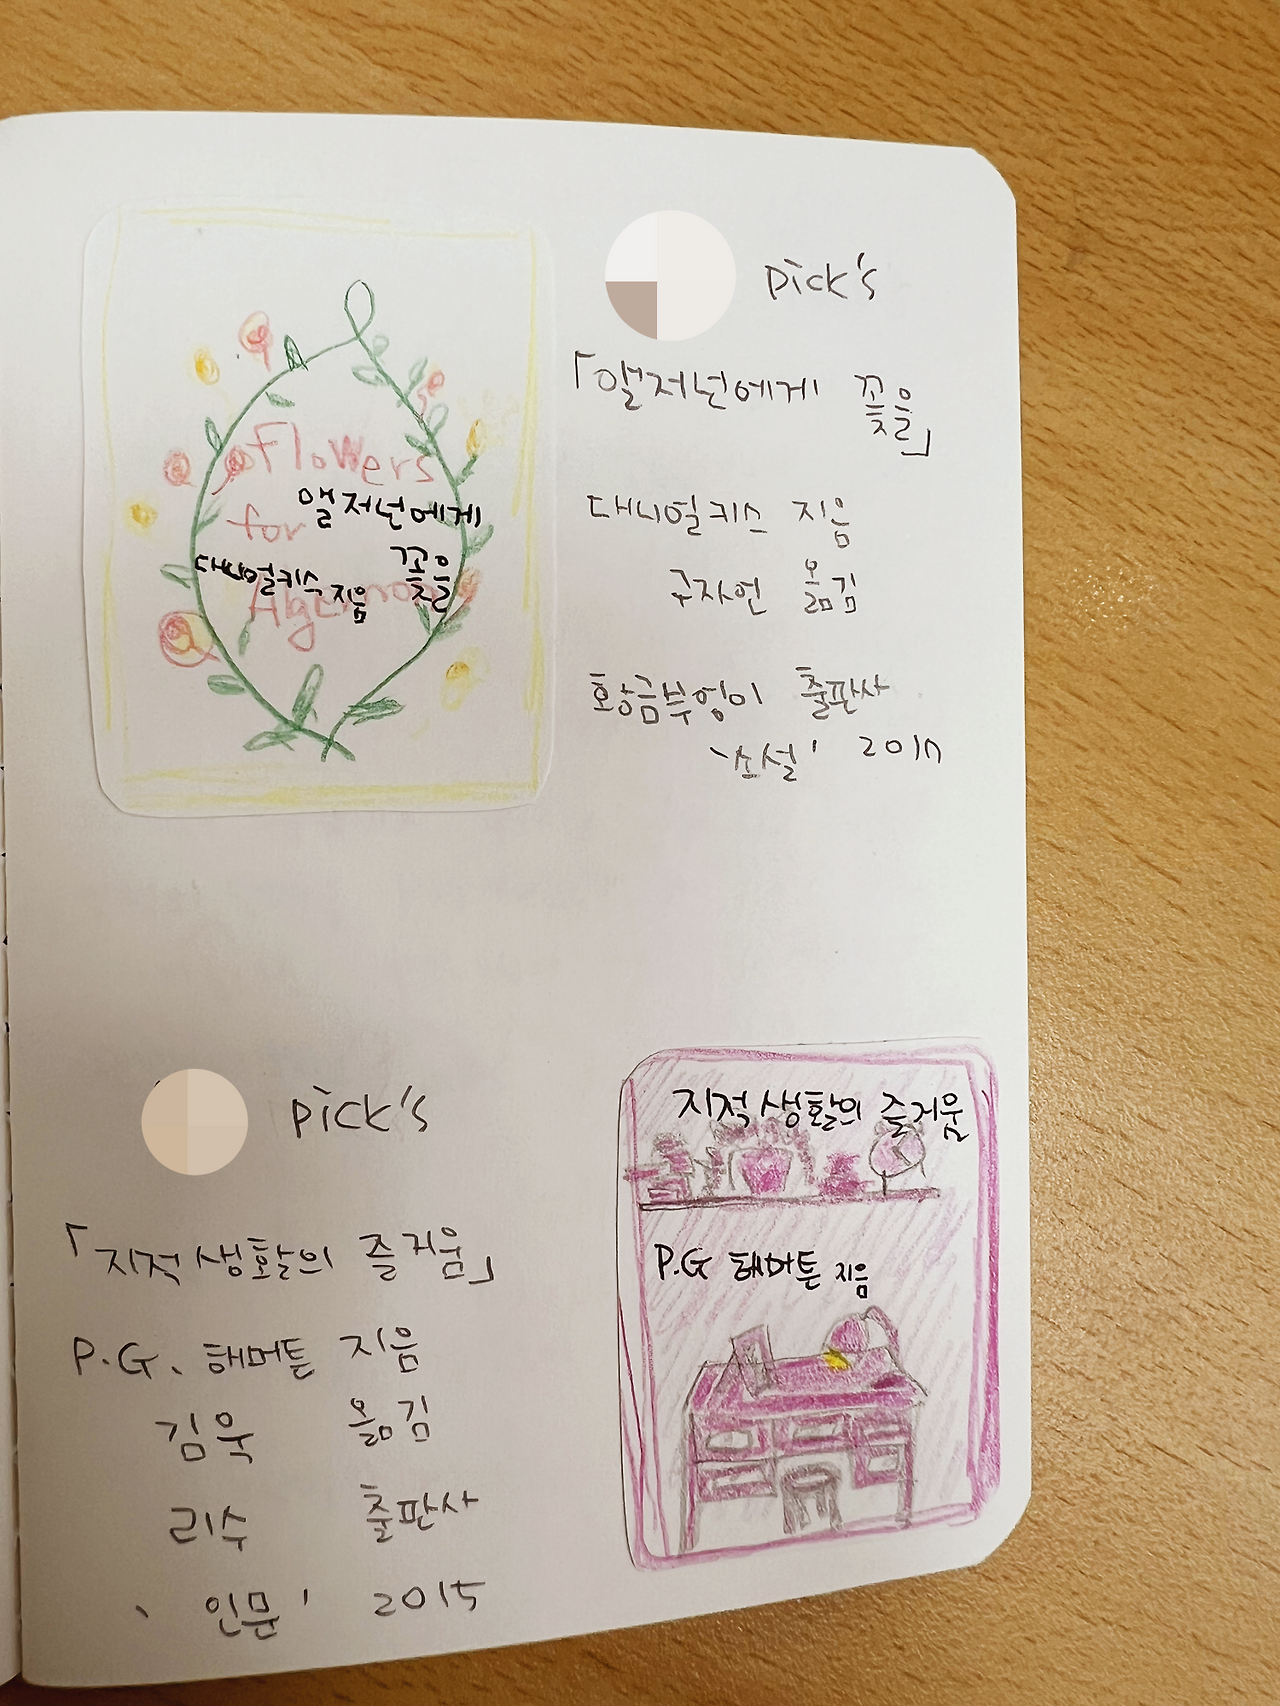 Flowers
for
Algernon
앨저넌에게
꽃을
대니얼키스 지음
pick's
「앨저넌에게 꽃을」
대니얼키스 지음
구자언 옮김
황금부엉이 출판사
'소설' 2017
pick's
「지적생활의 즐거움」
P.G. 해머튼 지음
김욱 옮김
리수 출판사
'인문' 2015
지적생활의 즐거움
P.G 해머튼 지음